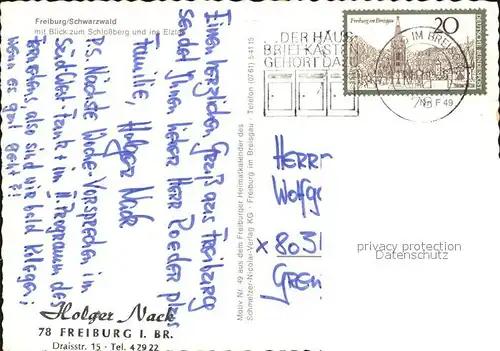 Freiburg/Schwarzwald
mit Blick zum Schloßberg und ins Elztal
Einen herzlichen Gruß aus Freiburg
sendet Ihnen lieber Herr Roeder plus
Familie, Holger Nack
P.S. Nächste Woche Vorsprechen in
Südwest-Funk + im II. Programm des
also sind wir bald Kollegen,
wenn es gut geht?!
Holger Nack
78 FREIBURG I. BR.
Draisstr. 15 · Tel. 47922
Motiv Nr. 49 aus dem Freiburger Heimatkalender des
Schmelzer-Nicolai-Verlag KG · Freiburg im Breisgau · Telefon (0761) 54115
DER HAUS-
BRIEFKASTEN
GEHÖRT DAZU
IM BREI
Freiburg im Breisgau
20
DEUTSCHE BUNDESPOST
Herrn
Wolfg
x 8031
privacy protection
Datenschutz